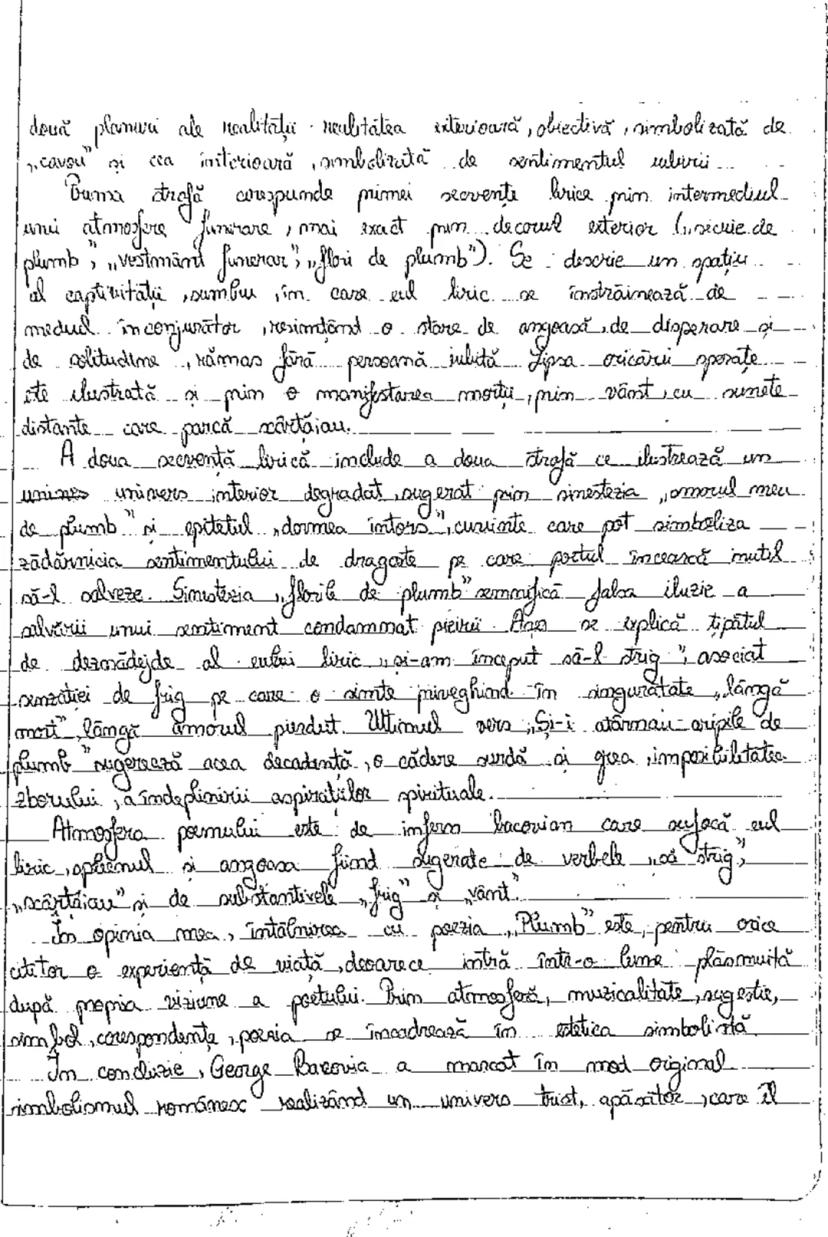 două planuri ale realității realitatea exterioară, obiectivă, simbolizată de
„cavou" și cea interioară, simbolizată de sentimentul iubirii
Prima strofă corespunde primei secvențe lirice prin intermediul
unui atmosfere funerare, mai exact prin decorul exterior („sicrie de
plumb", „vestmânt funerar", „flori de plumb"). Se descrie un spațiu
al captivității, sumbru, în care eul liric se înstrăinează de
mediul înconjurător, resimțând o stare de angoasă, de disperare și
de solitudine, rămas fără persoană iubită. Lipsa oricării speranțe
este ilustrată și prin o manifestarea morții, prin vânt, cu sunete
distante care parcă scârțâiau.
A doua secvență lirică include a doua strofă ce ilustrează un
univers interior degradat, sugerat prin sinestezia „amorul meu
de plumb" și epitetul „dormea întors", cuvinte care pot simboliza
zădărnicia sentimentului de dragoste pe care poetul încearcă inutil
să-l salveze. Sinestezia „florile de plumb" semnifică falsa iluzie a
salvării unui sentiment condamnat pieirii. Așa se explică țipătul
de deznădejde al eului liric „și-am început să-l strig", asociat
senzației de frig pe care o simte priveghind în singurătate „lângă
mort", lângă amorul pierdut. Ultimul vers „Și-i atârnau aripile de
plumb" sugerează acea decadență, o cădere surdă și grea, imposibilitatea
zborului, a îndeplinirii aspirațiilor spirituale.
Atmosfera poemului este de infern bacovian care sufocă eul
liric, spleenul și angoasa fiind sugerate de verbele „să strig",
„scârțâiau" și de substantivele „frig" și „vânt".
În opinia mea, întâlnirea cu poezia „Plumb" este, pentru orice
cititor o experiență de viață, deoarece intră într-o lume plăsmuită
după propria viziune a poetului. Prin atmosferă, muzicalitate, sugestie,
simbol, corespondențe, poezia se încadrează în estetica simbolistă
În concluzie, George Bacovia a marcat în mod original
simbolismul românesc realizând un univers trist, apăsător, care îl